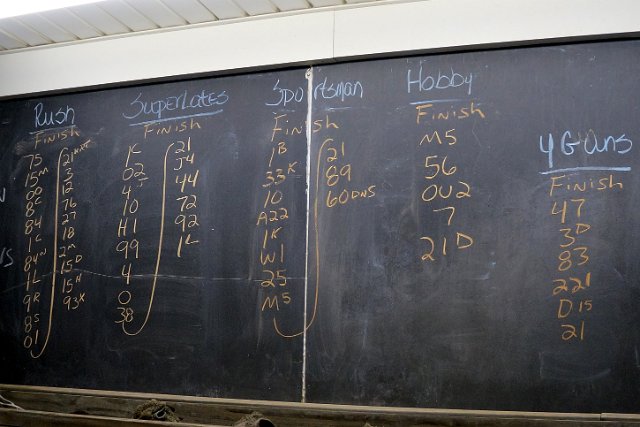 Rush
Finish
7S
15M
00
8C
84
1C
84M
1L
9R
8S
01
21KXT
3
12
76
27
1B
2M
15D
15H
93K
SuperLates
Finish
1K
02
4J
10
H1
99
4
0
38
21
J4
44
72
92
1L
Sportsman
Finish
1B
33K
10
A22
1K
W1
25
M5
21
89
60DNS
Hobby
Finish
M5
56
OU2
7
21D
4 Guns
Finish
47
3D
83
221
D15
21